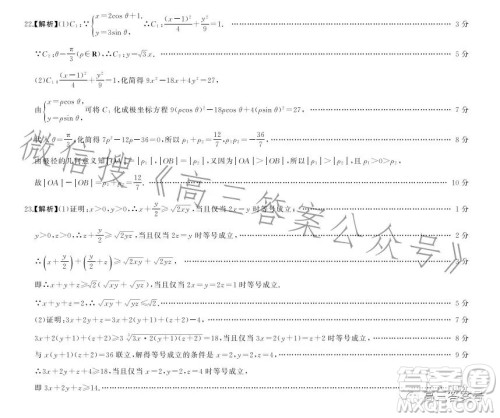 22.【解析】(1)C₁:∵{x=2cos θ+1, y=3sin θ, ∴C₁:(x-1)²/4+y²/9=1. 3分
∵C₂:θ=π/3(ρ∈R),∴C₂:y=√3x. 5分
(2)C₁:(x-1)²/4+y²/9=1,化简得9x²-18x+4y²=27,
由{x=ρcos θ, y=ρsin θ,可将C₁化成极坐标方程9(ρcos θ)²-18ρcos θ+4(ρsin θ)²=27, 7分
θ=π/3,化简得7ρ²-12ρ-36=0,所以ρ₁+ρ₂=12/7,ρ₁·ρ₂=-36/7. 8分
|OA|=|ρ₁|,|OB|=|ρ₂|,又因为|OA|>|OB|,所以|ρ₁|>|ρ₂|,且ρ₁>0>ρ₂,
故|OA|-|OB|=ρ₁+ρ₂=12/7. 10分
23.【解析】(1)证明:x>0,y>0,∴x+y/2≥√2xy,当且仅当2x=y时等号成立, 1分
y>0,z>0,∴y/2+z≥√2yz,当且仅当2z=y时等号成立, 2分
∴(x+y/2)+(y/2+z)≥√2xy+√2yz,
即∴x+y+z≥√2(√xy+√yz),当且仅当2x=y=2z=1时等号成立.
∵x+y+z=2,∴√xy+√yz≤√2. 5分
(2)证明:3x+2y+z=3x+2(y+1)+(z+2)-4, 7分
3x+2(y+1)+(z+2)≥3∛3x·2(y+1)(z+2)=18,当且仅当3x=2(y+1)=z+2时等号成立. 8分
与x(y+1)(z+2)=36联立,解得等号成立的条件是x=2,y=2,z=4, 9分
即3x+2y+z≥14.
微信搜《高三答案公众号》
答案圈